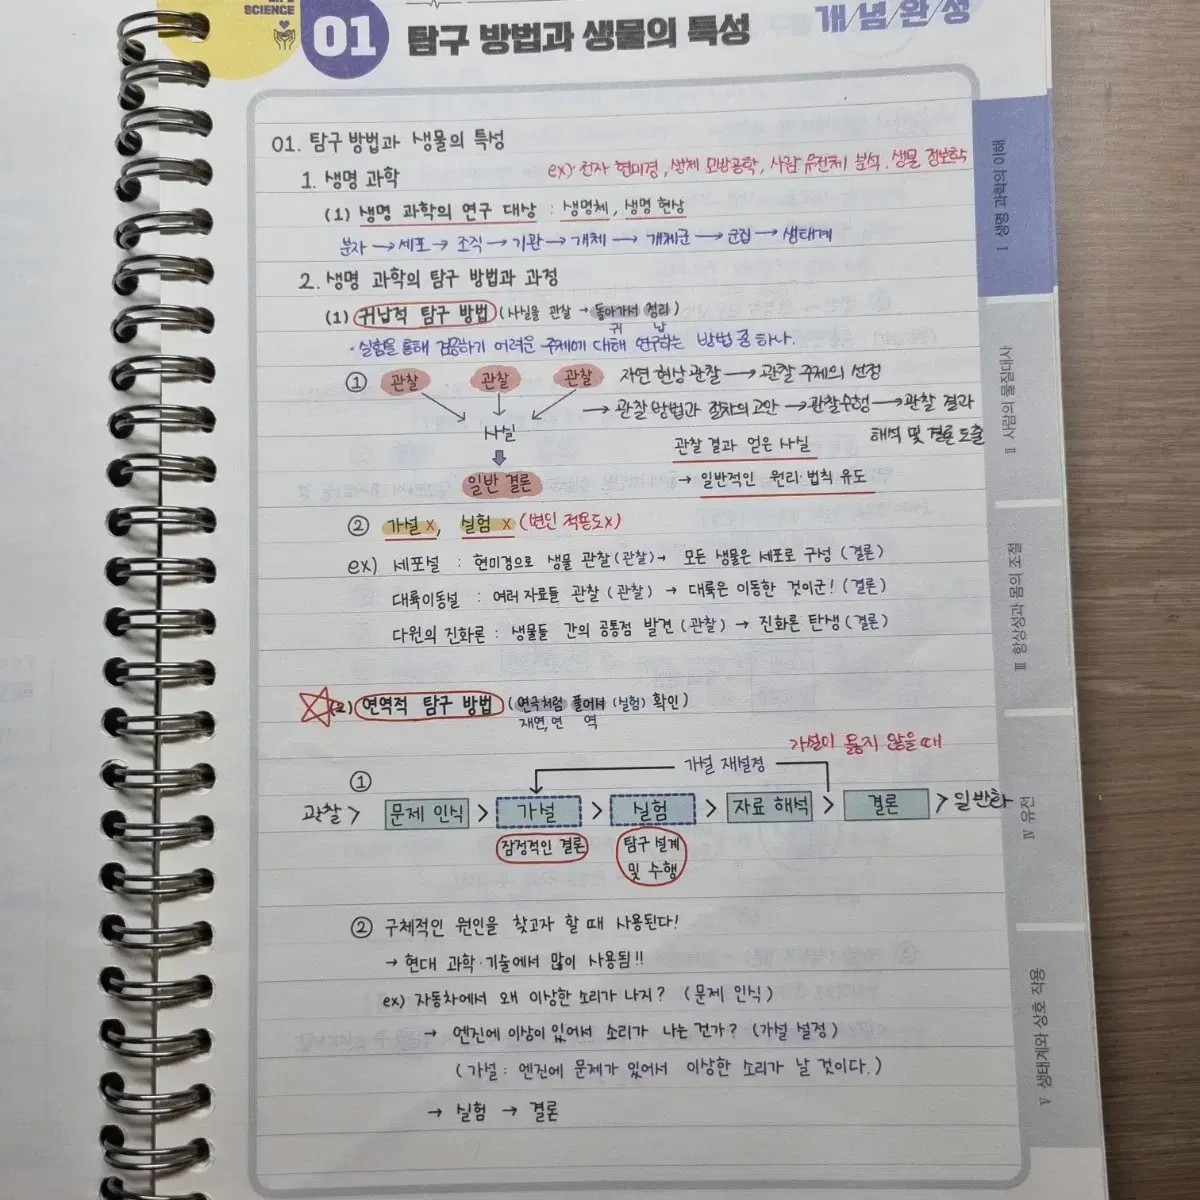 SCIENCE
01 탐구 방법과 생물의 특성
개/념/완/성
01. 탐구 방법과 생물의 특성
ex) 전자 현미경, 생체 모방공학, 사람 유전체 분석, 생물 정보학
1. 생명 과학
(1) 생명 과학의 연구 대상 : 생명체, 생명 현상
분자 → 세포 → 조직 → 기관 → 개체 → 개체군 → 군집 → 생태계
2. 생명 과학의 탐구 방법과 과정
(1) 귀납적 탐구 방법 (사실을 관찰 → 돌아가서 정리)
귀 납
· 실험을 통해 검증하기 어려운 주제에 대해 연구하는 방법 중 하나.
① 관찰 관찰 관찰
사실
일반 결론
자연 현상 관찰 → 관찰 주제의 선정
→ 관찰 방법과 절차의 고안 → 관찰수행 → 관찰 결과
해석 및 결론 도출
관찰 결과 얻은 사실
→ 일반적인 원리·법칙 유도
② 가설 x, 실험 x (변인 적용도x)
ex) 세포설 : 현미경으로 생물 관찰 (관찰) → 모든 생물은 세포로 구성 (결론)
대륙이동설 : 여러 자료들 관찰 (관찰) → 대륙은 이동한 것이군! (결론)
다윈의 진화론 : 생물들 간의 공통점 발견 (관찰) → 진화론 탄생 (결론)
(2) 연역적 탐구 방법 (연극처럼 풀어서 (실험) 확인)
재연, 연 역
가설이 옳지 않을 때
가설 재설정
①
관찰 > 문제 인식 > 가설 > 실험 > 자료 해석 > 결론 > 일반화
잠정적인 결론
탐구 설계
및 수행
② 구체적인 원인을 찾고자 할 때 사용된다!
→ 현대 과학·기술에서 많이 사용됨!!
ex) 자동차에서 왜 이상한 소리가 나지? (문제 인식)
→ 엔진에 이상이 있어서 소리가 나는 건가? (가설 설정)
(가설 : 엔진에 문제가 있어서 이상한 소리가 날 것이다.)
→ 실험 → 결론
Ⅰ 생명 과학의 이해
Ⅱ 사람의 물질대사
Ⅲ 항상성과 몸의 조절
Ⅳ 유전
Ⅴ 생태계와 상호 작용